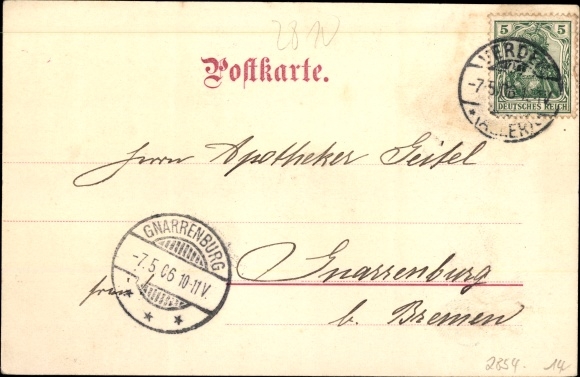 28
Postkarte.
5 5
DEUTSCHES REICH
VERDEN
-7.5.
(ALLER)
Herrn Apotheker Geitel
GNARRENBURG
-7.5.06 10-11V.
Gnarrenburg
b. Bremen
2854. 14